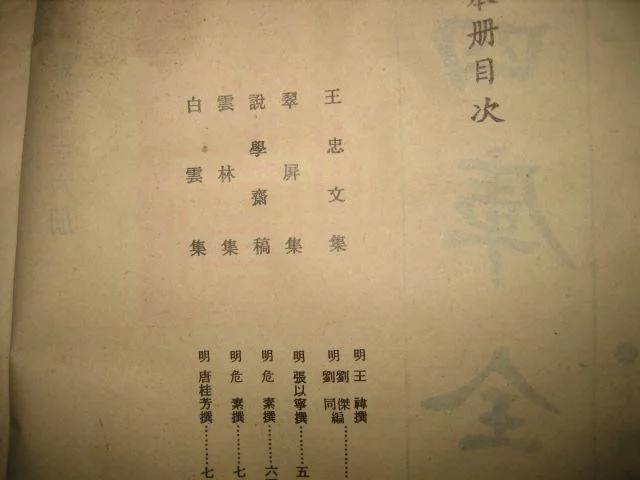 本册目次
王忠文集
明 王禕撰
明 劉傑 劉同編……
翠屏集
明 張以寧撰……五
說學齋稿
明 危素撰……六
雲林集
明 危素撰……七
白雲集
明 唐桂芳撰……七
四庫全